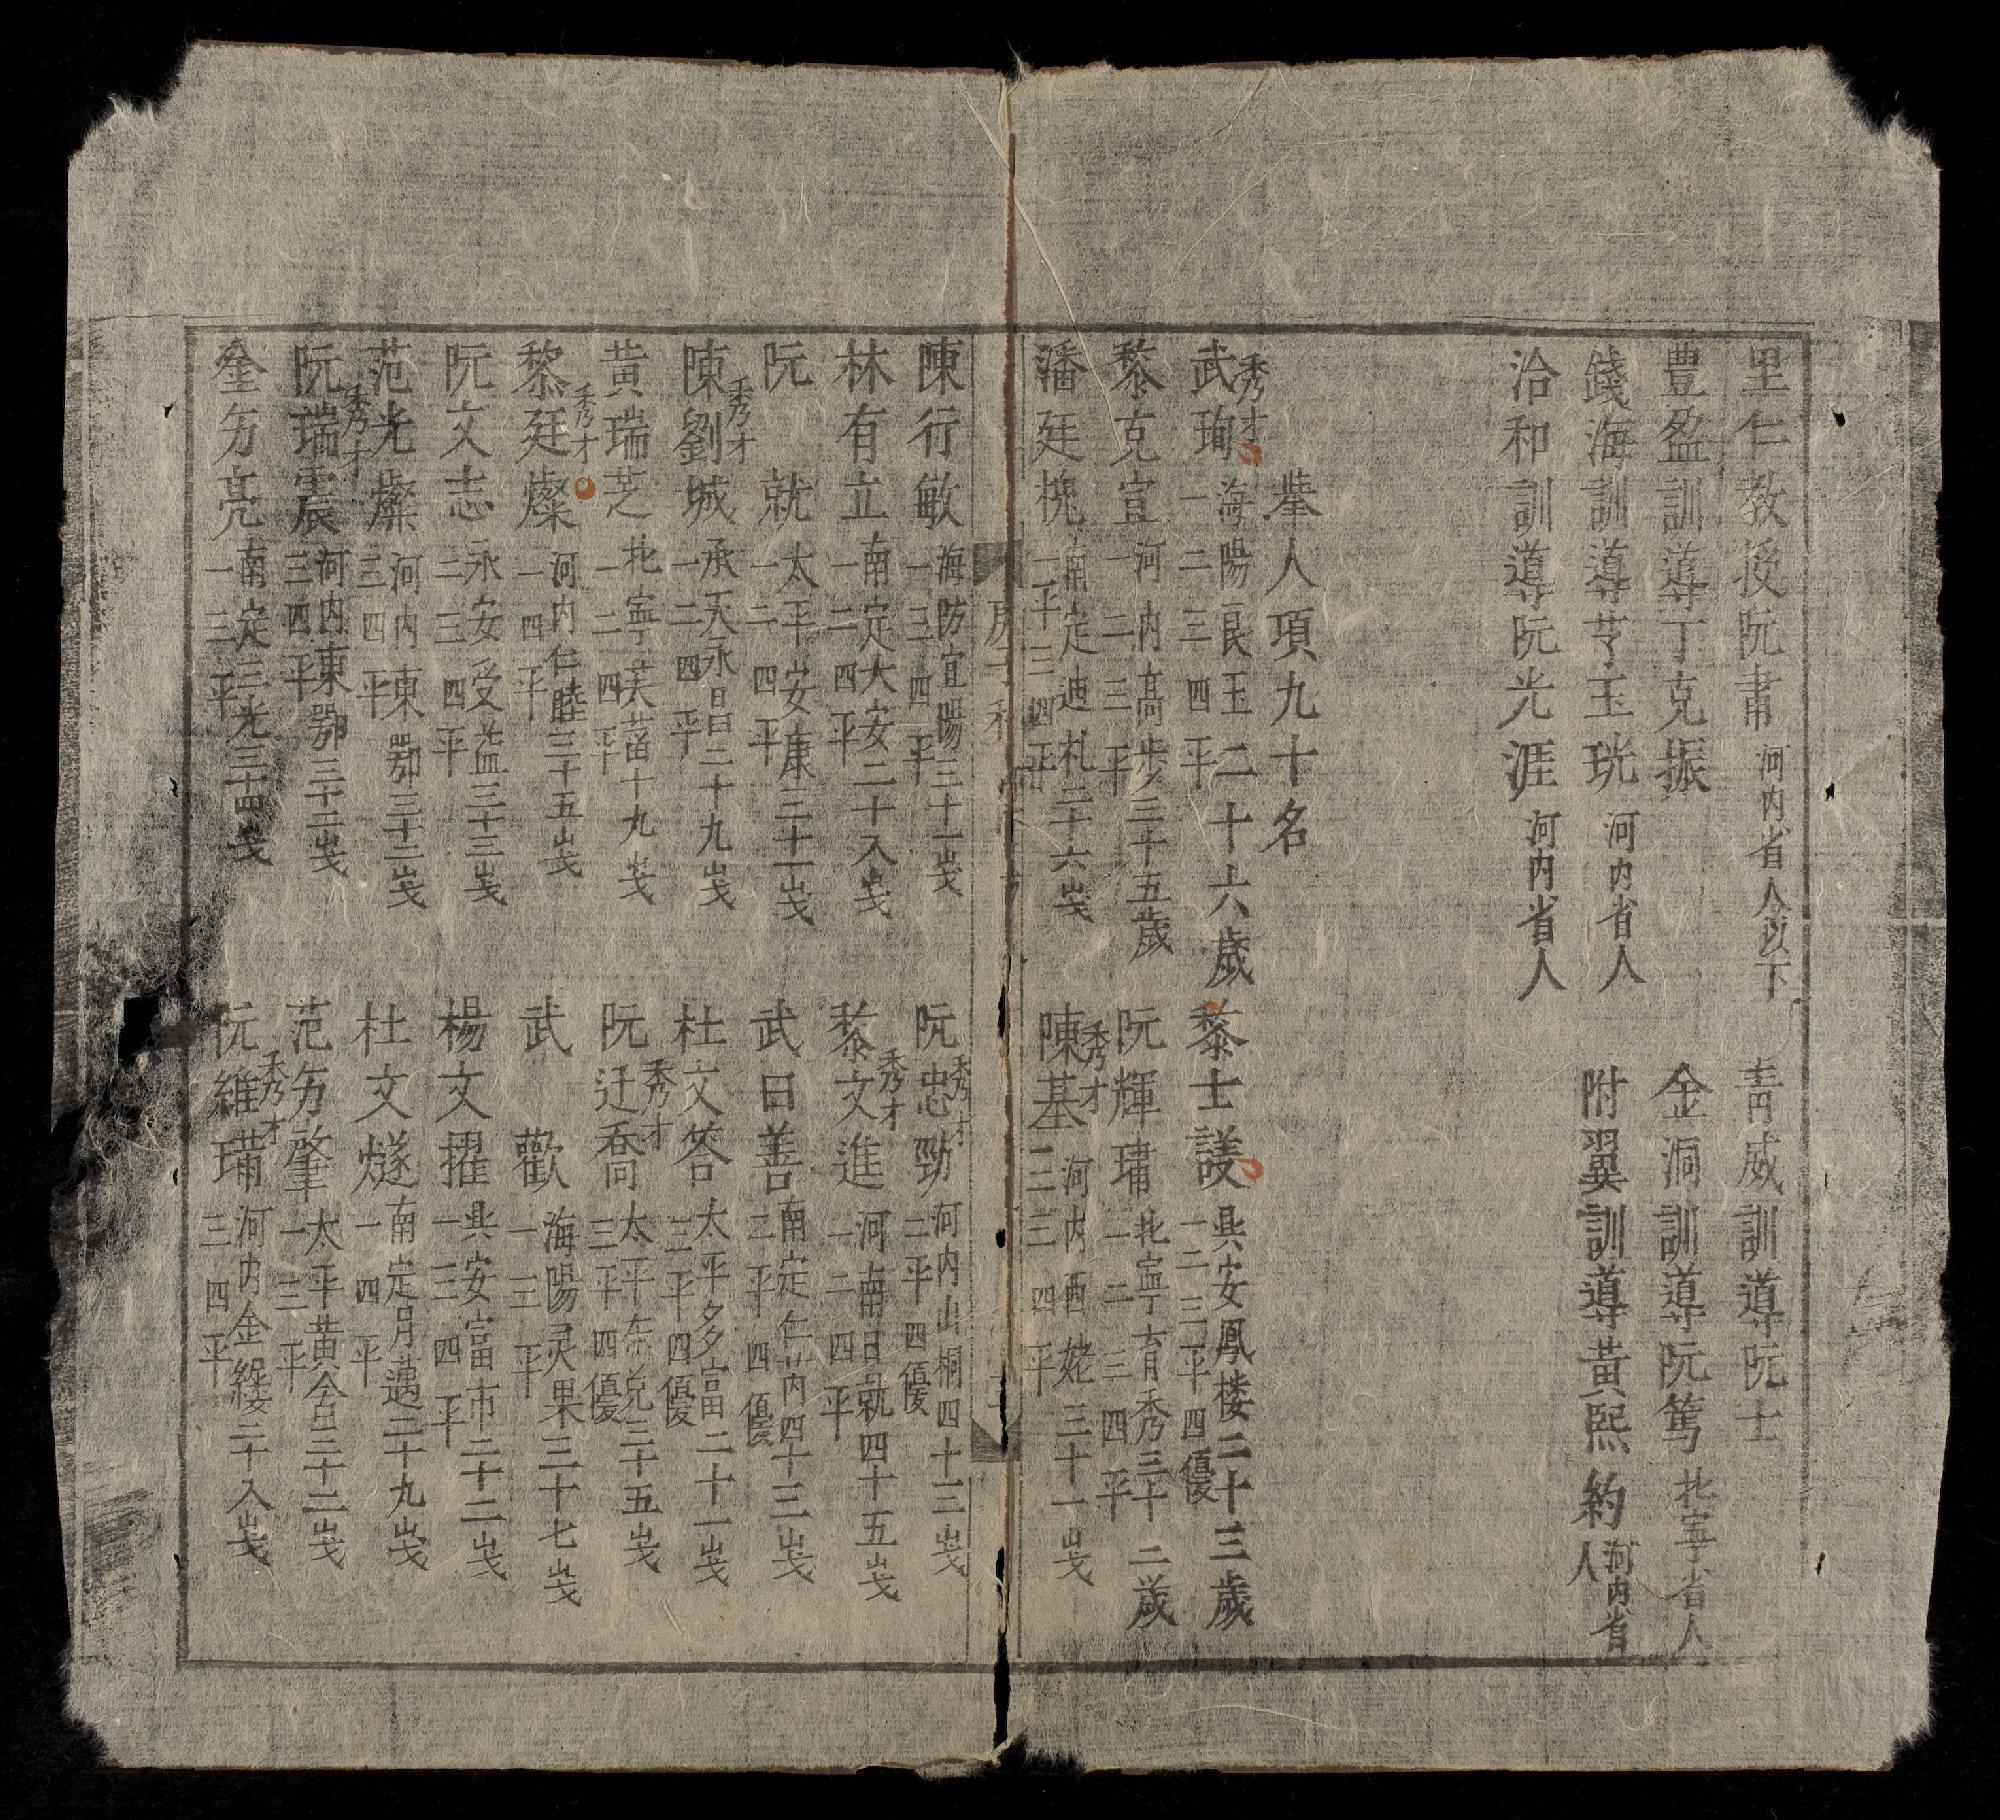 里仁教授阮肅河内省人以下
青威訓導阮士
豊盈訓導丁克振
金洞訓導阮篤北寧省人
錢海訓導芩玉珖河内省人
附翼訓導黃熙約河内省人
洽和訓導阮光涯河内省人
舉人項九十名
秀才
武珣海陽良玉二十六歲
一二三四平
黎士議興安鳳楼二十三歲
一二三平四優
黎克宜河内高步三十五歲
一二三平
阮輝𤩽北寧育秀三十二歲
一二三四平
潘廷槐南定迪礼二十六歲
二平三四平
秀才
陳基河内西姥三十一歲
二三四平
陳行敏海防宜陽三十一歲
一三四平
秀才
阮忠勁河内山桐四十三歲
二平四優
林有立南定大安二十八歲
一二四平
秀才
黎文進河南日就四十五歲
一二四平
阮就太平安康三十一歲
一二四平
武曰善南定仁芮四十三歲
三平四優
秀才
陳劉城承天永昌二十九歲
一二四平
杜文答太平多富二十一歲
三平四優
黃瑞芝北寧芙蕾十九歲
一二四平
秀才
阮迂喬太平東兌三十五歲
三平四優
秀才
黎廷燦河内仁睦三十五歲
一四平
武歡海陽灵果三十七歲
一三平
阮文志永安受益三十三歲
二三四平
楊文擢興安富市二十二歲
一三四平
范光燦河内東鄂三十二歲
三四平
杜文燧南定月邁二十九歲
一四平
秀才
阮瑞震河内東鄂三十二歲
三四平
范䇫肇太平黃金三十二歲
一三平
亮南定三光三十四歲
一三平
秀才
阮維𤩽河内金縷二十八歲
三四平